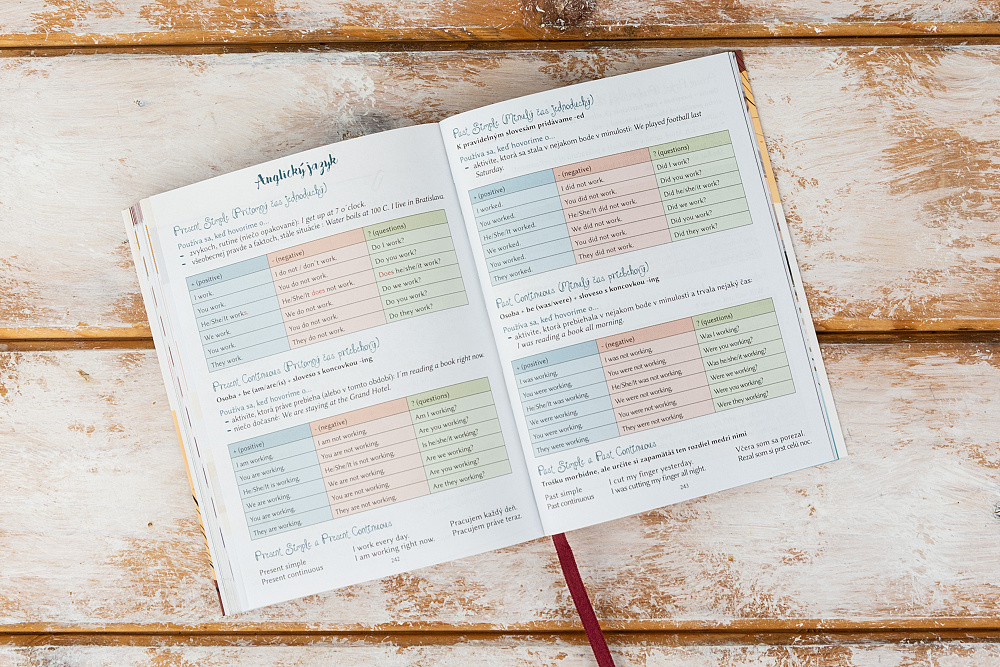 Anglický jazyk
Present Simple (Prítomný čas jednoduchý)
Používa sa, keď hovoríme o...
– zvykoch, rutine (niečo opakované): I get up at 7 o´clock.
– všeobecnej pravde a faktoch, stále situácie : Water boils at 100 C. I live in Bratislava.
+ (positive) - (negative) ? (questions)
I work. I do not / don´t work. Do I work?
You work. You do not work. Do you work?
He/She/It works. He/She/It does not work. Does he/she/it work?
We work. We do not work. Do we work?
You work. You do not work. Do you work?
They work. They do not work. Do they work?
Present Continuous (Prítomný čas priebehový)
Osoba + be (am/are/is) + sloveso s koncovkou -ing
Používa sa, keď hovoríme o...
– aktivite, ktorá práve prebieha (alebo v tomto období): I´m reading a book right now.
– niečo dočasné: We are staying at the Grand Hotel.
+ (positive) - (negative) ? (questions)
I am working. I am not working. Am I working?
You are working. You are not working. Are you working?
He/She/It is working. He/She/It is not working. Is he/she/it working?
We are working. We are not working. Are we working?
You are working. You are not working. Are you working?
They are working. They are not working. Are they working?
Present Simple a Present Continuous
Present simple I work every day. Pracujem každý deň.
Present continuous I am working right now. Pracujem práve teraz.
242
Past Simple (Minulý čas jednoduchý)
K pravidelným slovesám pridávame -ed
Používa sa, keď hovoríme o...
– aktivite, ktorá sa stala v nejakom bode v minulosti: We played football last
Saturday.
+ (positive) - (negative) ? (questions)
I worked. I did not work. Did I work?
You worked. You did not work. Did you work?
He/She/It worked. He/She/It did not work. Did he/she/it work?
We worked. We did not work. Did we work?
You worked. You did not work. Did you work?
They worked. They did not work. Did they work?
Past Continuous (Minulý čas priebehový)
Osoba + be (was/were) + sloveso s koncovkou -ing
Používa sa, keď hovoríme o...
– aktivite, ktorá prebiehala v nejakom bode v minulosti a trvala nejaký čas:
I was reading a book all morning.
+ (positive) - (negative) ? (questions)
I was working. I was not working. Was I working?
You were working. You were not working. Were you working?
He/She/It was working. He/She/It was not working. Was he/she/it working?
We were working. We were not working. Were we working?
You were working. You were not working. Were you working?
They were working. They were not working. Were they working?
Past Simple a Past Continuous
Trošku morbídne, ale určite si zapamätáš ten rozdiel medzi nimi
Past simple I cut my finger yesterday. Včera som sa porezal.
Past continuous I was cutting my finger all night. Rezal som si prst celú noc.
243